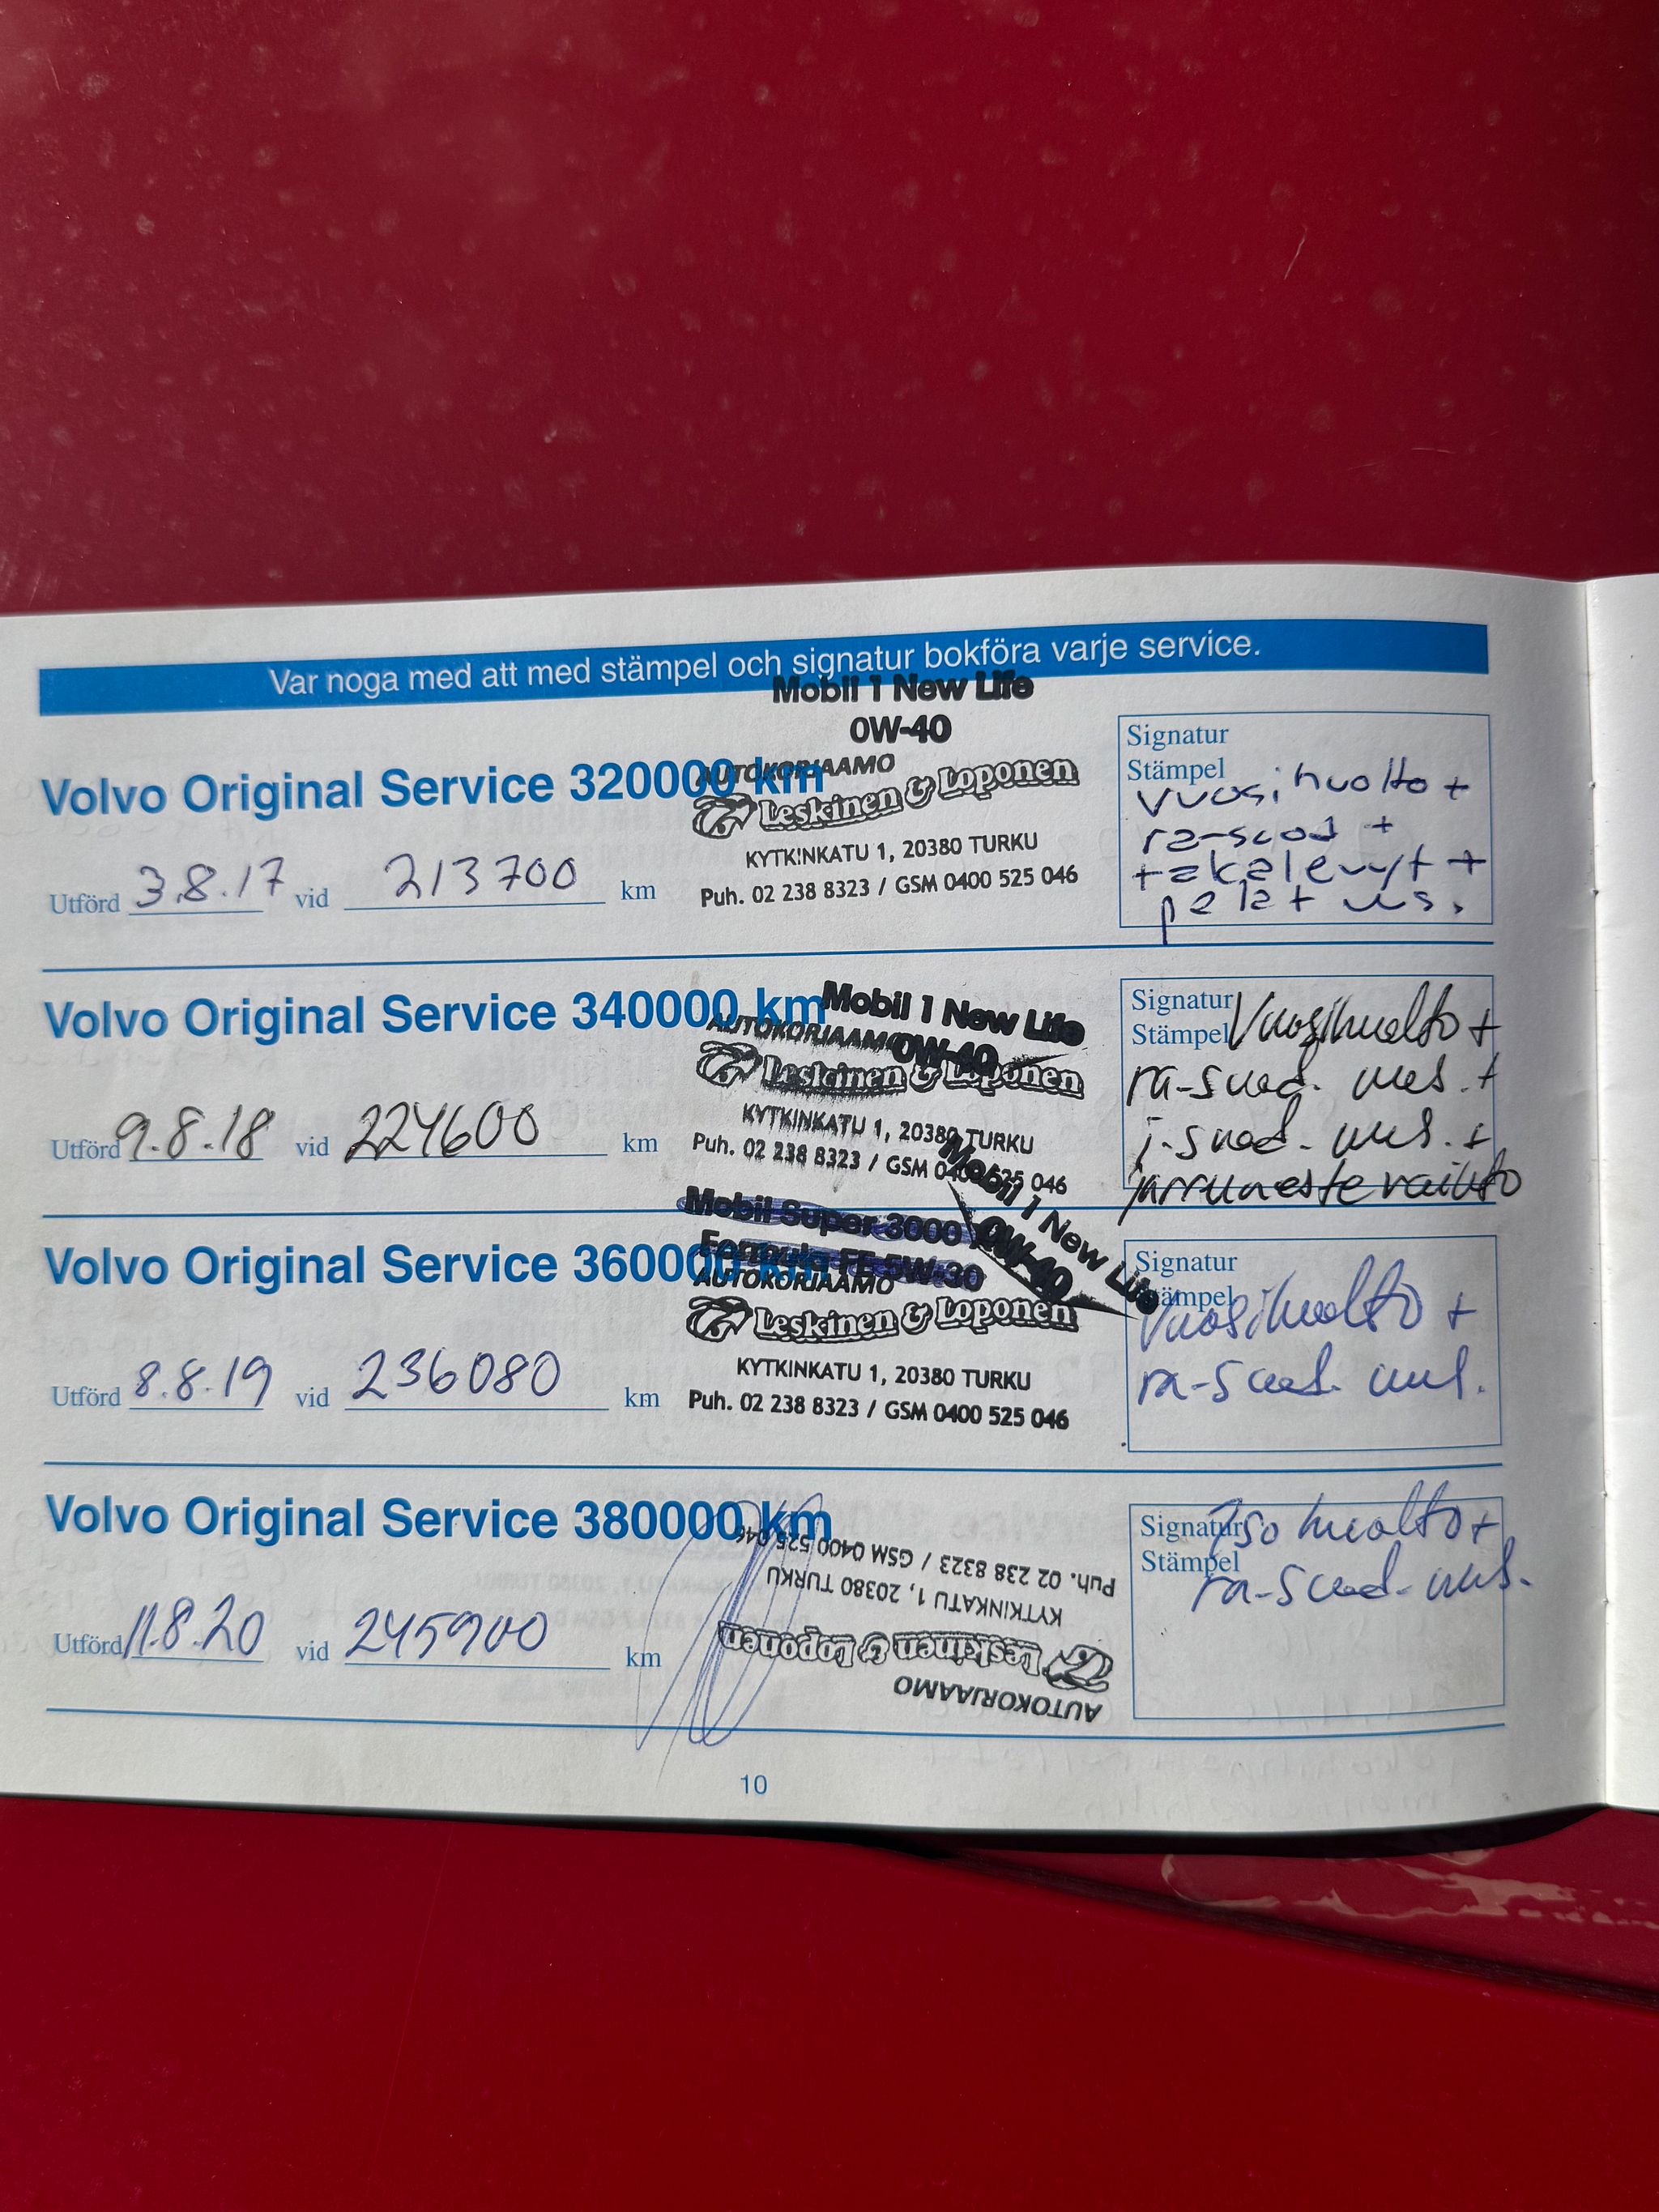 Var noga med att med stämpel och signatur bokföra varje service.
Mobil 1 New Life
0W-40
Volvo Original Service 320000 km
AUTOKORJAAMO
Leskinen & Loponen
KYTKINKATU 1, 20380 TURKU
Puh. 02 238 8323 / GSM 0400 525 046
Utförd 3.8.17 vid 213700 km
Signatur
Stämpel
vuosihuolto +
ra-suod +
takalevyt +
palat uus.
Volvo Original Service 340000 km
Mobil 1 New Life
0W-40
AUTOKORJAAMO
Leskinen & Loponen
KYTKINKATU 1, 20380 TURKU
Puh. 02 238 8323 / GSM 0400 525 046
Utförd 9.8.18 vid 224600 km
Signatur
Stämpel
Vuosihuolto +
ra-suod. uus. +
i-suod. uus. +
jarrunestevaihto
Mobil Super 3000
Formula FE 5W-30
Mobil 1 New Life
0W-40
Volvo Original Service 360000 km
AUTOKORJAAMO
Leskinen & Loponen
KYTKINKATU 1, 20380 TURKU
Puh. 02 238 8323 / GSM 0400 525 046
Utförd 8.8.19 vid 236080 km
Signatur
Stämpel
Vuosihuolto +
ra-suod. uus.
Volvo Original Service 380000 km
AUTOKORJAAMO
Leskinen & Loponen
KYTKINKATU 1, 20380 TURKU
Puh. 02 238 8323 / GSM 0400 525 046
Utförd 11.8.20 vid 245900 km
Signatur
Stämpel
Iso huolto +
ra-suod. uus.
10